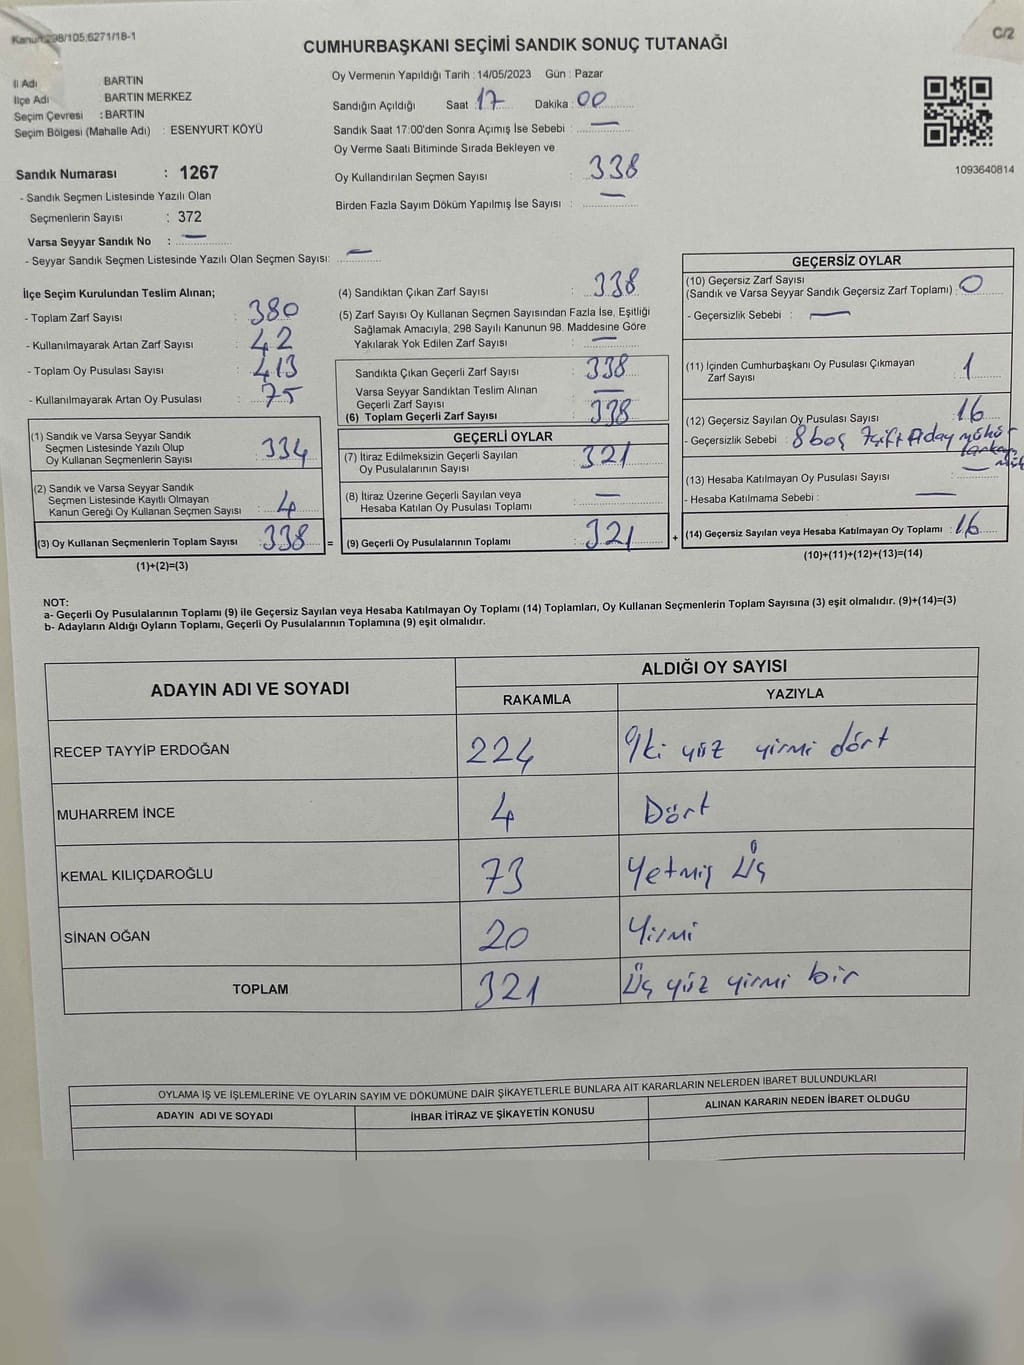 Kanun:298/105;6271/18-1
C/2
CUMHURBAŞKANI SEÇİMİ SANDIK SONUÇ TUTANAĞI
İl Adı : BARTIN
İlçe Adı : BARTIN MERKEZ
Seçim Çevresi : BARTIN
Seçim Bölgesi (Mahalle Adı) : ESENYURT KÖYÜ
Oy Vermenin Yapıldığı Tarih : 14/05/2023 Gün : Pazar
Sandığın Açıldığı Saat : 17 Dakika : 00
Sandık Saat 17:00'den Sonra Açımış İse Sebebi : —
Oy Verme Saati Bitiminde Sırada Bekleyen ve
Oy Kullandırılan Seçmen Sayısı : 338
Birden Fazla Sayım Döküm Yapılmış İse Sayısı : —
1093640814
Sandık Numarası : 1267
- Sandık Seçmen Listesinde Yazılı Olan
Seçmenlerin Sayısı : 372
Varsa Seyyar Sandık No : —
- Seyyar Sandık Seçmen Listesinde Yazılı Olan Seçmen Sayısı: —
İlçe Seçim Kurulundan Teslim Alınan;
- Toplam Zarf Sayısı : 380
- Kullanılmayarak Artan Zarf Sayısı : 42
- Toplam Oy Pusulası Sayısı : 413
- Kullanılmayarak Artan Oy Pusulası : 75
(1) Sandık ve Varsa Seyyar Sandık
Seçmen Listesinde Yazılı Olup
Oy Kullanan Seçmenlerin Sayısı : 334
(2) Sandık ve Varsa Seyyar Sandık
Seçmen Listesinde Kayıtlı Olmayan
Kanun Gereği Oy Kullanan Seçmen Sayısı : 4
(3) Oy Kullanan Seçmenlerin Toplam Sayısı : 338 =
(1)+(2)=(3)
(4) Sandıktan Çıkan Zarf Sayısı : 338
(5) Zarf Sayısı Oy Kullanan Seçmen Sayısından Fazla İse, Eşitliği
Sağlamak Amacıyla, 298 Sayılı Kanunun 98. Maddesine Göre
Yakılarak Yok Edilen Zarf Sayısı : —
Sandıkta Çıkan Geçerli Zarf Sayısı : 338
Varsa Seyyar Sandıktan Teslim Alınan
Geçerli Zarf Sayısı : —
(6) Toplam Geçerli Zarf Sayısı : 338
GEÇERLİ OYLAR
(7) İtiraz Edilmeksizin Geçerli Sayılan
Oy Pusulalarının Sayısı : 321
(8) İtiraz Üzerine Geçerli Sayılan veya
Hesaba Katılan Oy Pusulası Toplamı : —
(9) Geçerli Oy Pusulalarının Toplamı : 321 +
GEÇERSİZ OYLAR
(10) Geçersiz Zarf Sayısı
(Sandık ve Varsa Seyyar Sandık Geçersiz Zarf Toplamı) : 0
- Geçersizlik Sebebi : —
(11) İçinden Cumhurbaşkanı Oy Pusulası Çıkmayan
Zarf Sayısı : 1
(12) Geçersiz Sayılan Oy Pusulası Sayısı : 16
- Geçersizlik Sebebi : 8 boş 7 çift Aday mühür
(13) Hesaba Katılmayan Oy Pusulası Sayısı : —
- Hesaba Katılmama Sebebi : —
(14) Geçersiz Sayılan veya Hesaba Katılmayan Oy Toplamı : 16
(10)+(11)+(12)+(13)=(14)
NOT:
a- Geçerli Oy Pusulalarının Toplamı (9) ile Geçersiz Sayılan veya Hesaba Katılmayan Oy Toplamı (14) Toplamları, Oy Kullanan Seçmenlerin Toplam Sayısına (3) eşit olmalıdır. (9)+(14)=(3)
b- Adayların Aldığı Oyların Toplamı, Geçerli Oy Pusulalarının Toplamına (9) eşit olmalıdır.
ADAYIN ADI VE SOYADI
ALDIĞI OY SAYISI
RAKAMLA YAZIYLA
RECEP TAYYİP ERDOĞAN 224 İki yüz yirmi dört
MUHARREM İNCE 4 Dört
KEMAL KILIÇDAROĞLU 73 Yetmiş Üç
SİNAN OĞAN 20 Yirmi
TOPLAM 321 Üç yüz yirmi bir
OYLAMA İŞ VE İŞLEMLERİNE VE OYLARIN SAYIM VE DÖKÜMÜNE DAİR ŞİKAYETLERLE BUNLARA AİT KARARLARIN NELERDEN İBARET BULUNDUKLARI
ADAYIN ADI VE SOYADI
İHBAR İTİRAZ VE ŞİKAYETİN KONUSU
ALINAN KARARIN NEDEN İBARET OLDUĞU